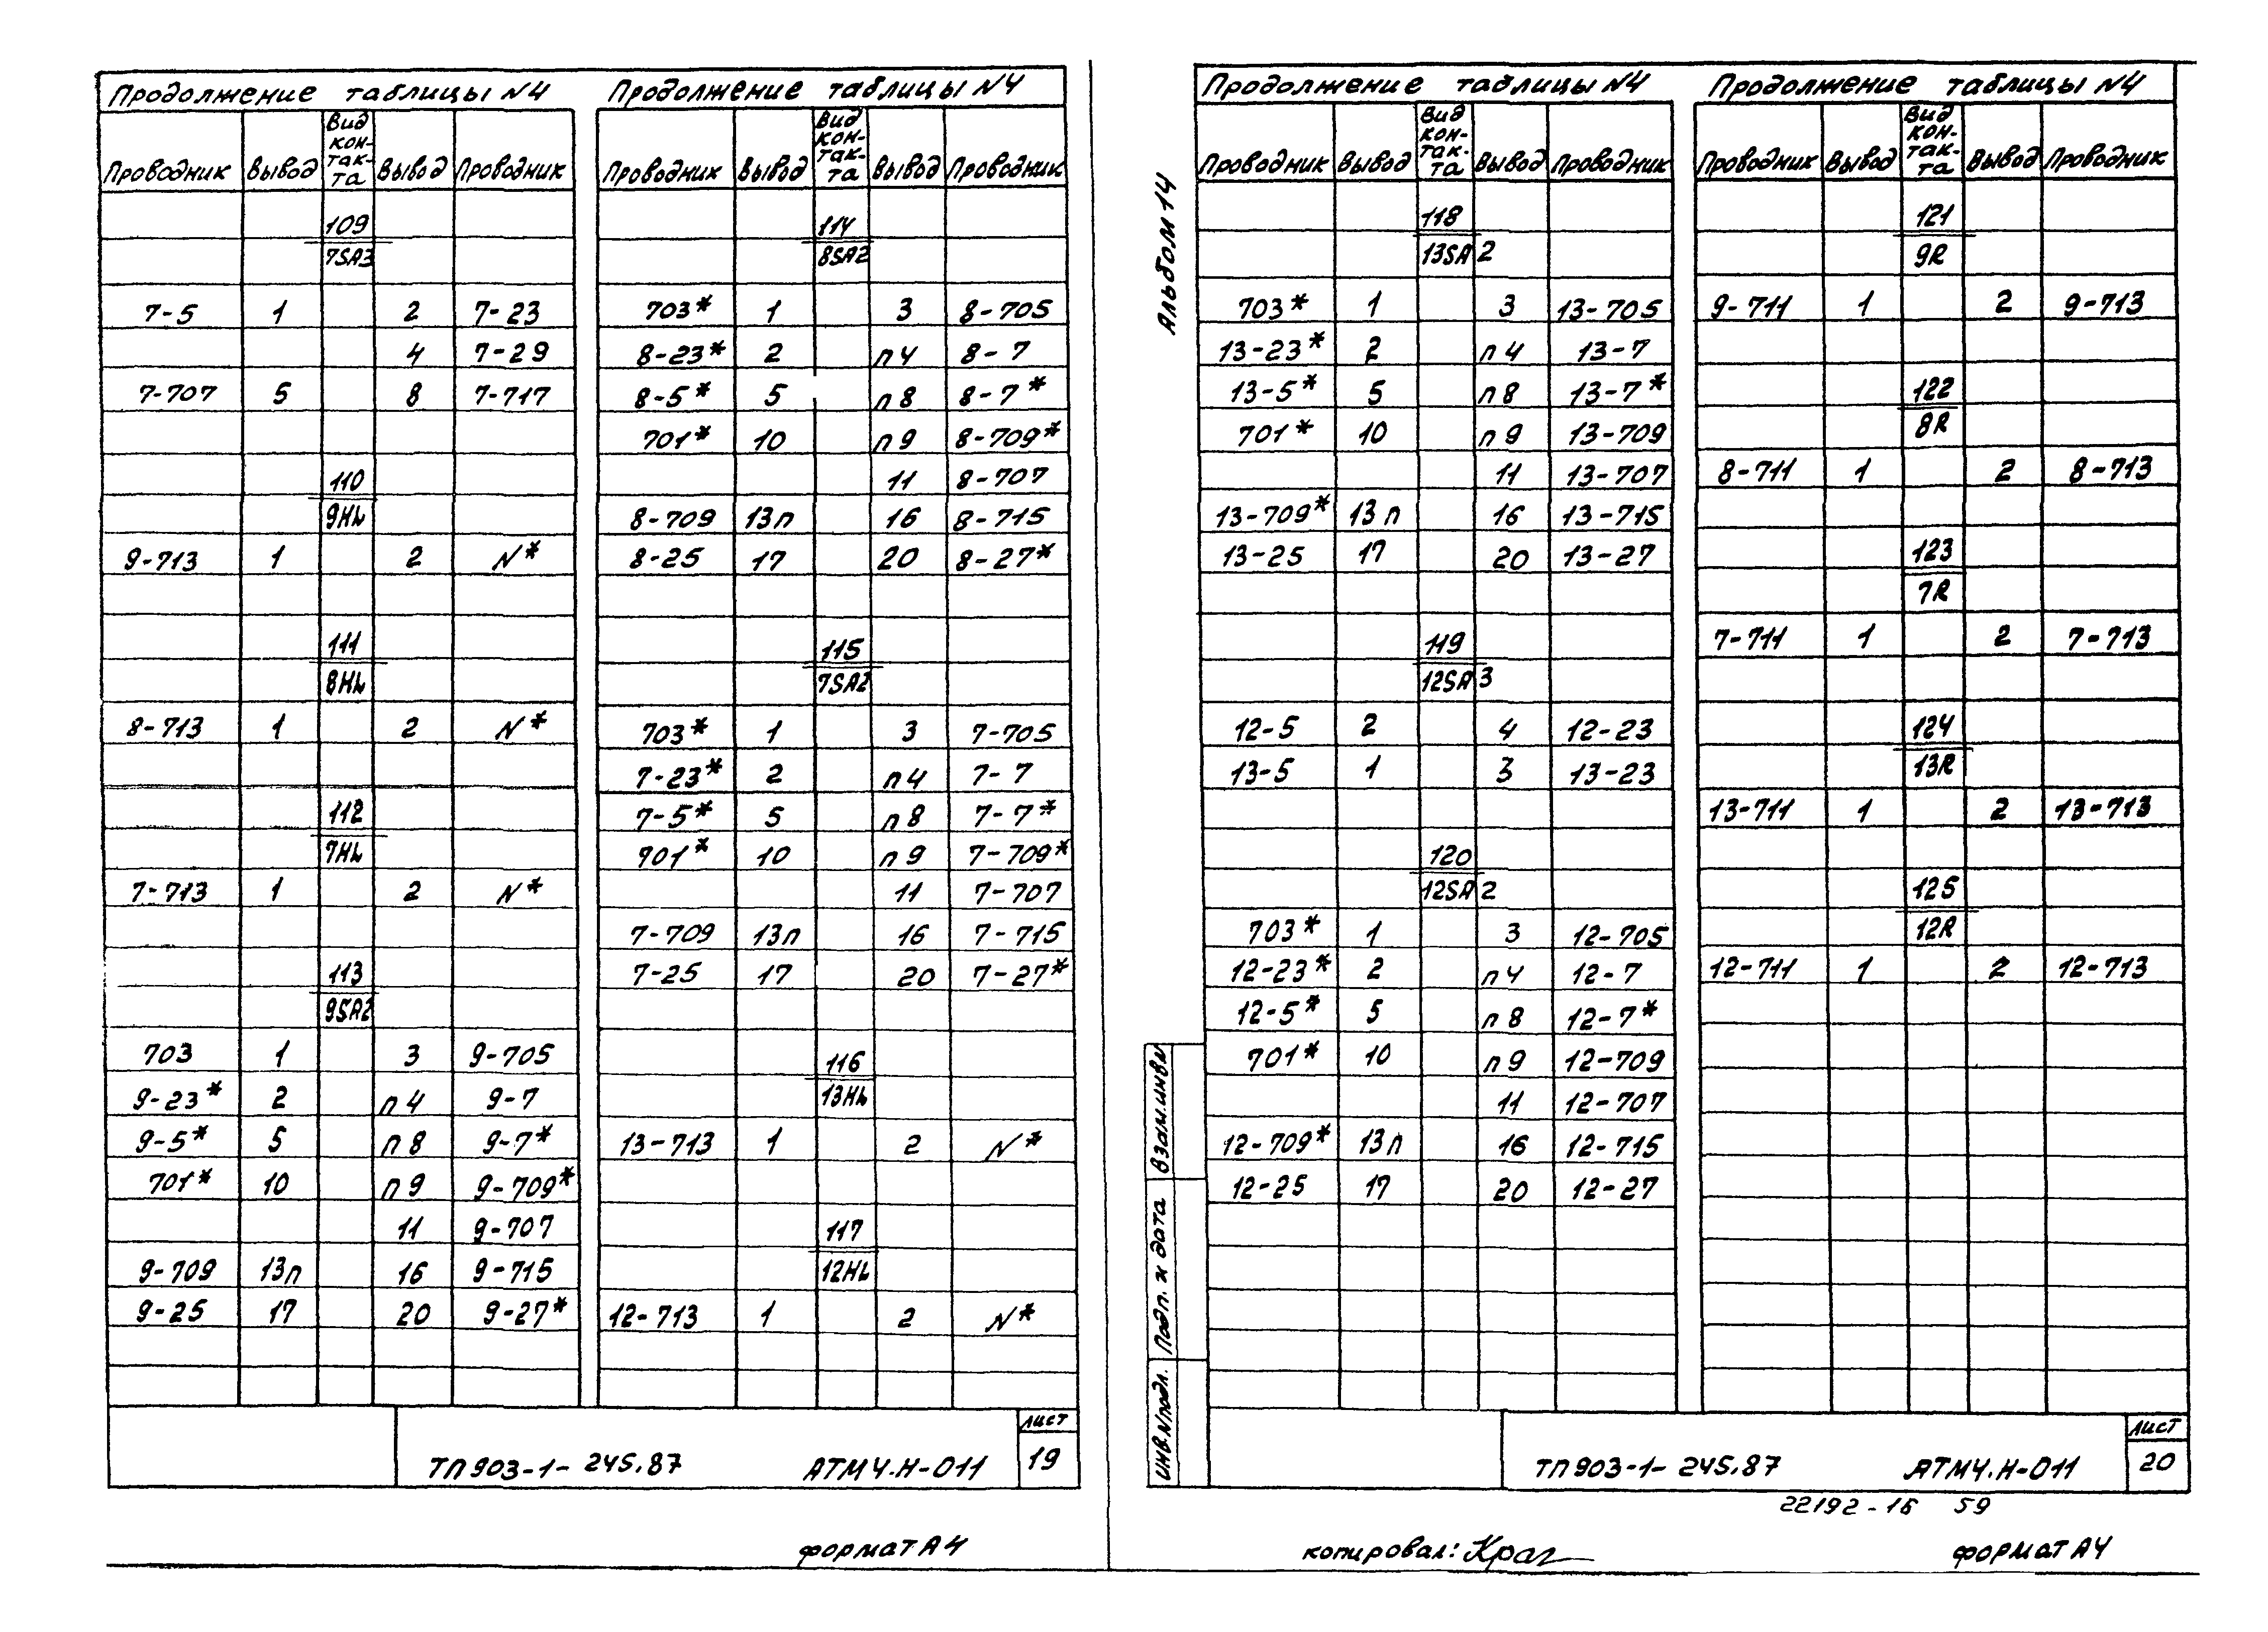 Продолжение таблицы №4
Проводник Вывод Вид кон-так-та Вывод Проводник
109
7SA3
7-5 1 2 7-23
4 7-29
7-707 5 8 7-717
110
9HL
9-713 1 2 N*
111
8HL
8-713 1 2 N*
112
7HL
7-713 1 2 N*
113
9SA2
703 1 3 9-705
9-23* 2 п4 9-7
9-5* 5 п8 9-7*
701* 10 п9 9-709*
11 9-707
9-709 13п 16 9-715
9-25 17 20 9-27*
Продолжение таблицы №4
Проводник Вывод Вид кон-так-та Вывод Проводник
114
8SA2
703* 1 3 8-705
8-23* 2 п4 8-7
8-5* 5 п8 8-7*
701* 10 п9 8-709*
11 8-707
8-709 13п 16 8-715
8-25 17 20 8-27*
115
7SA2
703* 1 3 7-705
7-23* 2 п4 7-7
7-5* 5 п8 7-7*
701* 10 п9 7-709*
11 7-707
7-709 13п 16 7-715
7-25 17 20 7-27*
116
13HL
13-713 1 2 N*
117
12HL
12-713 1 2 N*
ТП903-1-245.87 АТМ4.Н-011
Лист
19
формат А4
Альбом 14
Продолжение таблицы №4
Проводник Вывод Вид кон-так-та Вывод Проводник
118
13SA2
703* 1 3 13-705
13-23* 2 п4 13-7
13-5* 5 п8 13-7*
701* 10 п9 13-709
11 13-707
13-709* 13п 16 13-715
13-25 17 20 13-27
119
12SA3
12-5 2 4 12-23
13-5 1 3 13-23
120
12SA2
703* 1 3 12-705
12-23* 2 п4 12-7
12-5* 5 п8 12-7*
701* 10 п9 12-709
11 12-707
12-709* 13п 16 12-715
12-25 17 20 12-27
Продолжение таблицы №4
Проводник Вывод Вид кон-так-та Вывод Проводник
121
9R
9-711 1 2 9-713
122
8R
8-711 1 2 8-713
123
7R
7-711 1 2 7-713
124
13R
13-711 1 2 13-713
125
12R
12-711 1 2 12-713
Взам.инв№
Подп. и дата
Инв.№подл.
ТП903-1-245.87 АТМ4.Н-011
Лист
20
22192-16 59
копировал: Краг
формат А4